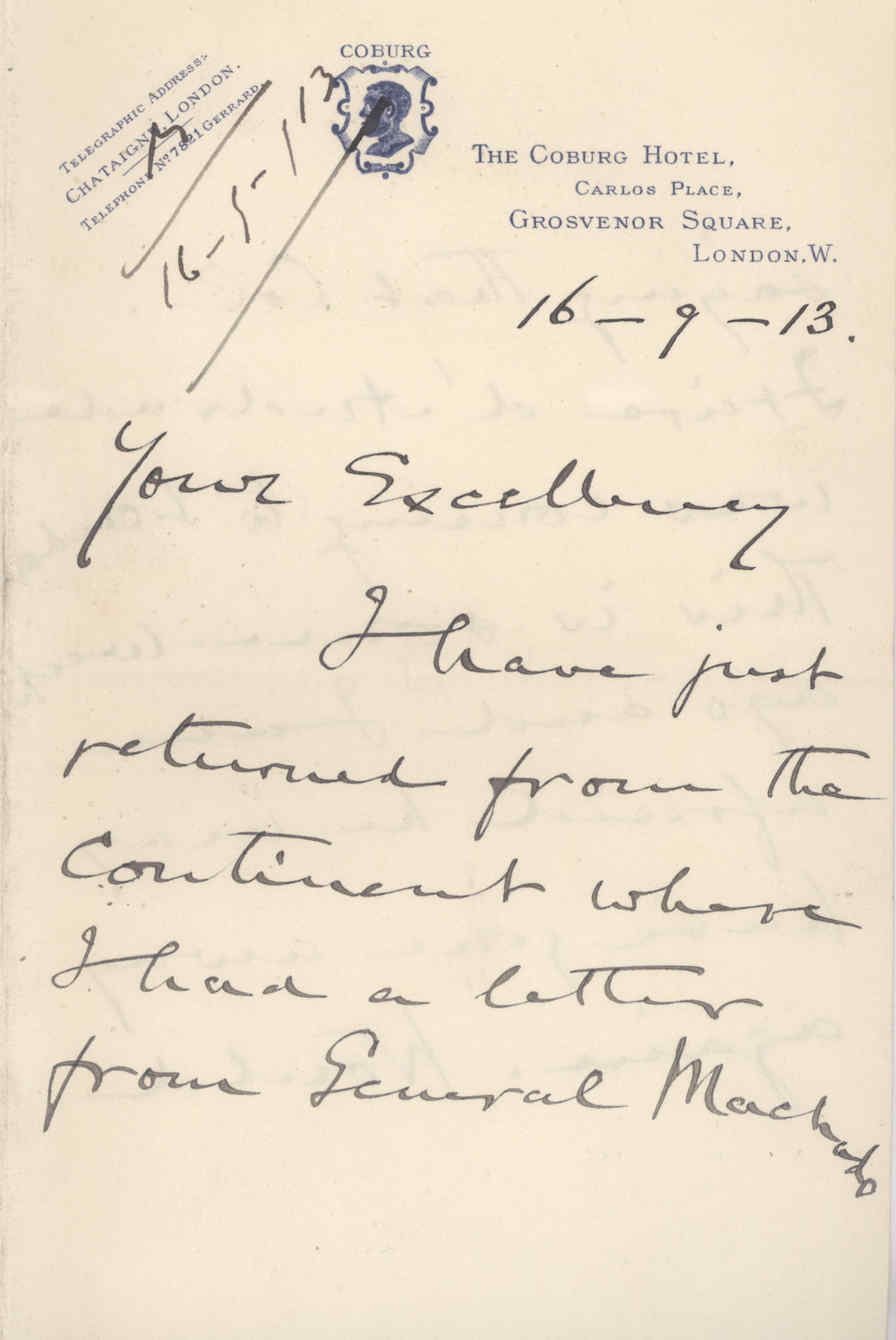 TELEGRAPHIC ADDRESS:-
CHATAIGNE LONDON.
TELEPHONE Nº 7821 GERRARD.
COBURG
16-5-113
THE COBURG HOTEL,
CARLOS PLACE,
GROSVENOR SQUARE,
LONDON.W.
16-9-13.
Your Excellency
I have just
returned from the
Continent where
I had a letter
from General Machado